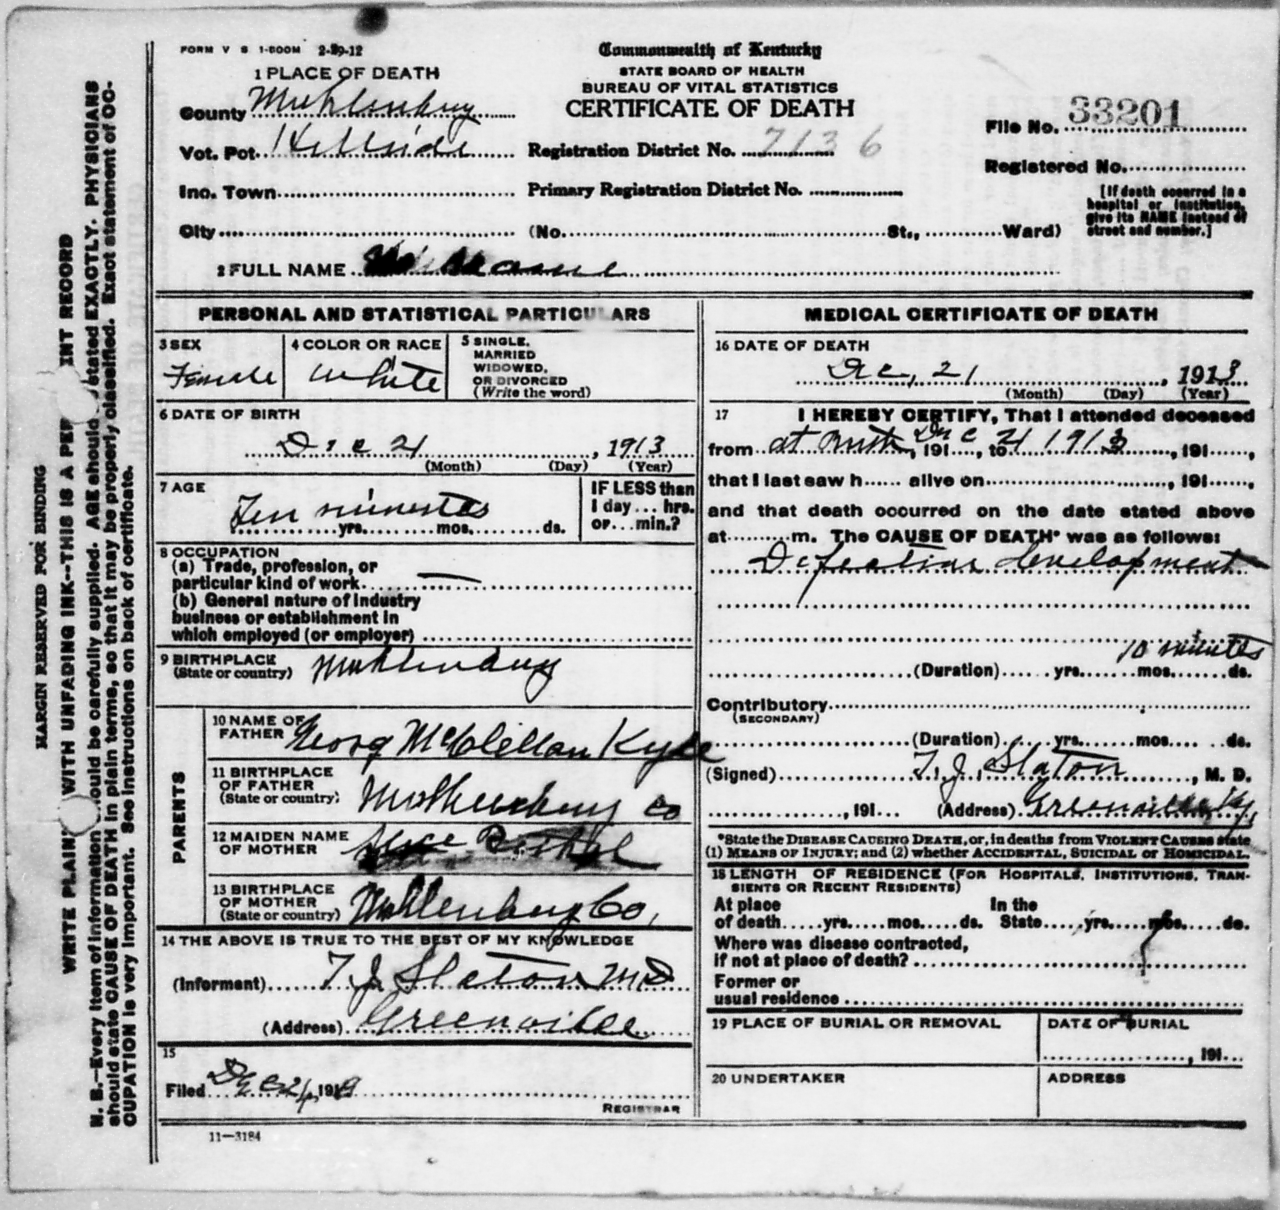 FORM V S 1-500M 2-29-12
Commonwealth of Kentucky
STATE BOARD OF HEALTH
BUREAU OF VITAL STATISTICS
CERTIFICATE OF DEATH
1 PLACE OF DEATH
County Muhlenburg
Vot. Pct. Hillside
Inc. Town
City
Registration District No. 7136
Primary Registration District No.
(No. St., Ward)
File No. 33201
Registered No.
[If death occurred in a hospital or institution, give its NAME instead of street and number.]
2 FULL NAME
PERSONAL AND STATISTICAL PARTICULARS
3 SEX
Female
4 COLOR OR RACE
White
5 SINGLE, MARRIED WIDOWED, OR DIVORCED (Write the word)
6 DATE OF BIRTH
Dec 21, 1913
(Month) (Day) (Year)
7 AGE
Ten minutes
yrs. mos. ds.
IF LESS than 1 day... hrs. or... min.?
8 OCCUPATION
(a) Trade, profession, or particular kind of work
(b) General nature of industry business or establishment in which employed (or employer)
9 BIRTHPLACE (State or country) Muhlenburg
PARENTS
10 NAME OF FATHER Georg McClellan Kyle
11 BIRTHPLACE OF FATHER (State or country) Muhlenburg Co
12 MAIDEN NAME OF MOTHER
13 BIRTHPLACE OF MOTHER (State or country) Muhlenburg Co,
14 THE ABOVE IS TRUE TO THE BEST OF MY KNOWLEDGE
(Informant) T. J. Slaton MD
(Address) Greenville
15
Filed Dec 24, 191
REGISTRAR
11—3184
MEDICAL CERTIFICATE OF DEATH
16 DATE OF DEATH
Dec, 21, 1913
(Month) (Day) (Year)
17 I HEREBY CERTIFY, That I attended deceased
from at birth, 191 , to Dec 21 1913, 191 ,
that I last saw h alive on , 191 ,
and that death occurred on the date stated above
at m. The CAUSE OF DEATH* was as follows:
Defective development
10 minutes
(Duration) yrs. mos. ds.
Contributory (SECONDARY)
(Duration) yrs. mos. ds.
(Signed) T. J. Slaton, M. D.
, 191 (Address) Greenville Ky,
*State the DISEASE CAUSING DEATH, or, in deaths from VIOLENT CAUSES state
(1) MEANS OF INJURY; and (2) whether ACCIDENTAL, SUICIDAL or HOMICIDAL.
18 LENGTH OF RESIDENCE (FOR HOSPITALS, INSTITUTIONS, TRANSIENTS OR RECENT RESIDENTS)
At place of death yrs. mos. ds. In the State yrs. mos. ds.
Where was disease contracted, if not at place of death?
Former or usual residence
19 PLACE OF BURIAL OR REMOVAL
DATE OF BURIAL
, 191
20 UNDERTAKER
ADDRESS
MARGIN RESERVED FOR BINDING
WRITE PLAIN WITH UNFADING INK--THIS IS A INT RECORD
N. B.—Every item of information should be carefully supplied. AGE should stated EXACTLY. PHYSICIANS
should state CAUSE OF DEATH in plain terms, so that it may be properly classified. Exact statement of OC-
CUPATION is very important. See instructions on back of certificate.